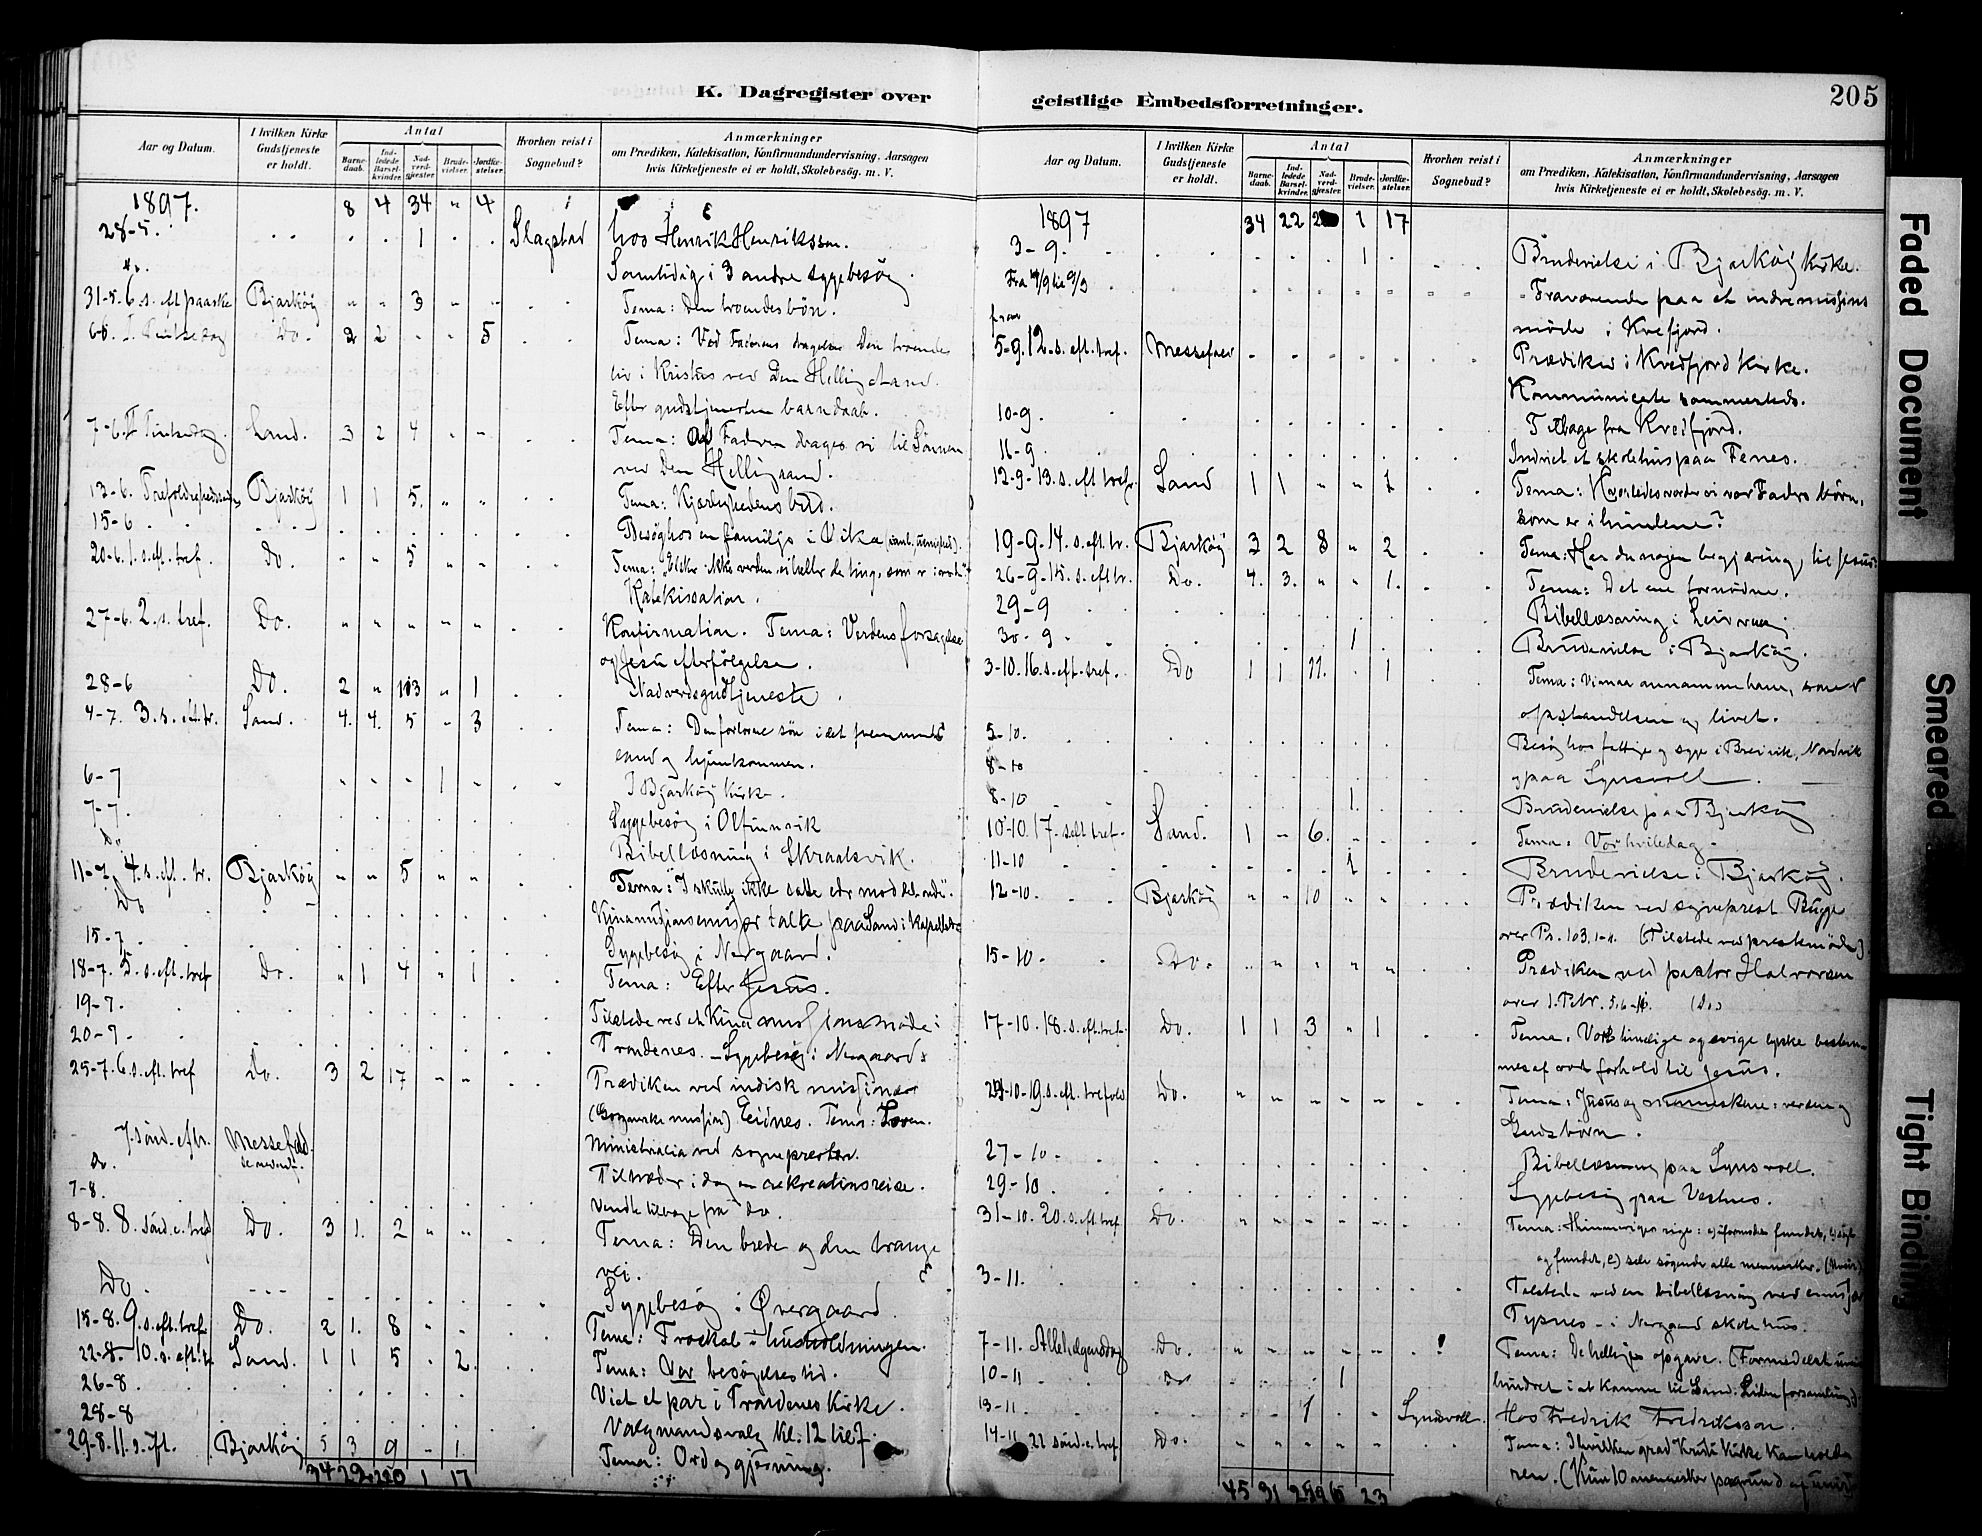 205
K. Dagregister over
geistlige Embedsforretninger.
Aar og Datum. I hvilken Kirke Gudstjeneste er holdt. Antal Barnedaab. Indledede Barselkvinder. Nadverdgjester. Brudevielser. Jordfæstelser. Hvorhen reist i Sognebud? Anmærkninger
om Prædiken, Katekisation, Konfirmandundervisning, Aarsagen hvis Kirketjeneste ei er holdt, Skolebesøg. m. V.
1897. 8 4 34 " 4
28-5. 1 Slagstad hos Henrik Henriksson.
Do. Samtidig i 3 andre sygebesøg.
31-5. 6. s. eft paaske Bjarköy " " 3 " " Tema: Den troendes bön.
6-6. I. Pintsedag Do. 2 2 5 Tema: Ved Faderens dragelse Den troende
liv i Kristus ved Den Hellig Aand.
Efter gudstjenesten barnedaab.
7-6. II Pintsedag. Sand. 3 2 4 Tema: Af Faderen drages vi til Sönnen
ved Den Helligaand.
13-6. Trefoldighedssönd. Bjarköy 1 1 5. " " Tema: Kjærlighedens bud.
15-6 Besög hos en familje i Vika
20-6. 1. s. eft. tref. Do " " 5 " " Tema: "Elsker ikke verden, ei heller de ting, som er i verden"
Katekisation.
27-6. 2. s. tref. Do. " " " " " Konfirmation. Tema: Verdens forsagelse
og Jesu efterfölgelse.
28-6 Do. 2 " 103 " 1 Nadverdgudtjeneste.
4-7. 3. s. eft. tr. Sand. 4. 4. 5 " 3 Tema: Den forlorne sön i det fremmede
land og hjemkommen.
6-7 " " " 1 " I Bjarköy kirke.
7-7. Sygebesøg i Altinnvik
Do. Bibellæsning i Skraalsvik.
11-7. 4. s. eft. tr. Bjarköy " " 5 " " Tema: "I skulle ikke sætte eder mod det onde".
Do Kinamissjonær talte paa Sand i Kapellet.
15-7. Sygebesøg i Nergaard.
18-7. 5. s. eft. tref Do. " 1 4 " 1 Tema: Efter Jesus.
19-7. Tilstede ved et Kina missjonsmøde i
20-7. Trondenes. - Sygebesøg i Nergaard
25-7. 6. s. eft. tref Do. 3 2 17 " " Prædiken ved indisk missionær
Eidnes. Tema: Loven.
7. sönd. eftr. Messefald Ministralia ved sogneprestn.
Do. Tiltræder i dag en rekreationsreise.
7-8. Vendte tilbage fra do.
8-8. 8. sönd. e. tref Do. 3 1. 2 " " Tema: Den brede og den trange
vei.
Do. Sygebesøg i Øvergaard
15-8. 9. s. eft. tref. Do. 2 1. 8 " " Tema: Troskab i husholdningen.
22-8. 10. s. eft. tr. Sand. 1 1 5 . 2. Tema: Vor besøgelses tid.
26-8. Viet et par i Trondenes Kirke.
28-8 Valgmandsvalg kl. 12 til 7.
29-8. 11. s. eft. Bjarköy 5 3 9 " 1. Tema: Ord og gjerning.
34 22 220 1 17
Aar og Datum. I hvilken Kirke Gudstjeneste er holdt. Antal Barnedaab. Indledede Barselkvinder. Nadverdgjester. Brudevielser. Jordfæstelser. Hvorhen reist i Sognebud? Anmærkninger
om Prædiken, Katekisation, Konfirmandundervisning, Aarsagen hvis Kirketjeneste ei er holdt, Skolebesøg. m. V.
1897 34 22 1 17
3-9. 1 Brudevielse i Bjarköy kirke.
Fra 4/9 til 9/9 Fraværende paa et indremissjons
møde i Kvefjord.
5-9. 12. s. eft. tref. Messefald Prædiker i Kvedfjord Kirke.
Kommunicete sammesteds.
10-9. Tilbage fra Kvedfjord.
11-9 Indviet et skolehus paa Fenes.
12-9. 13. s. eft tref. Sand 1 1 " " 1 Tema: Hvorledes vorder vi vor Faders börn,
som er i himlene?
19-9. 14. s. eft. tr. Bjarköy 3 2 8 " 2 Tema: Har du nogen begjæring til Jesus?
26-9. 15. s. eft tr. Do. 4. 3. " " 1. Tema: Det ene fornödne.
29-9 Bibellæsning i Leirvaag
30-9 1 Brudevielse i Bjarköy.
3-10. 16. s. eft. tref. Do 1 1 11. . 1 Tema: Vi maa annamme ham, som er
opstandelsen og livet.
5-10. Besög hos fattige og syge i Breivik, Nordvik
8-10 og paa Lynsvoll.
8-10 1. Brudevielse paa Bjarköy
10-10. 17. s. eft tref. Sand. 1 " 6. " Tema: Vor hviledag.
11-10 1 Brudevielse i Bjarköy.
12-10. Bjarköy " " 10 " " Prædiken ved sogneprest Bugge
over Ps. 103. 1-11. (Tilstede ved prestemöde).
15-10. Do. " " " " " Prædiken ved pastor Halvorsen
over 1. Petr. 5. 6-11. (Do.)
17-10. 18. s. eft. tref. Do. 1 1 3 " 1 Tema: Vor timelige og evige lykke bestem-
mes af vort forhold til Jesus.
24-10. 19. s. eft. trefold Do. " " " " " Tema: Jesus og menneskene: verden og
Guds börn.
27-10 Bibellæsning paa Lynsvoll.
29-10 Sygebesøg paa Vestnes.
31-10. 20. s. eft. tref Do. " " " " " Tema: Himmeriges rige:
og fundet, c) selv søgende alle mennesker.
3-11. Tilstede ved en bibellæsning ved emissjær
Tysnes i Nergaard skolehus.
7-11. Allehelgensdag Do. " " " " " ! Tema: De helliges opgave. (Formedelst uveir
10-11 Do 1 hindret i at komme til Sand: Liden forsamling).
13-11. 1 Lynsvoll. Hos Fredrik Fredriksson.
14-11 22 sönd. e. tref Do. " " " " " Tema: I hvilken grad Kristi Kirke kan holdes
ren. (Kun 10 mennesker paagrund af uveir)
45 31 23
Faded Document
Smeared
Tight Binding